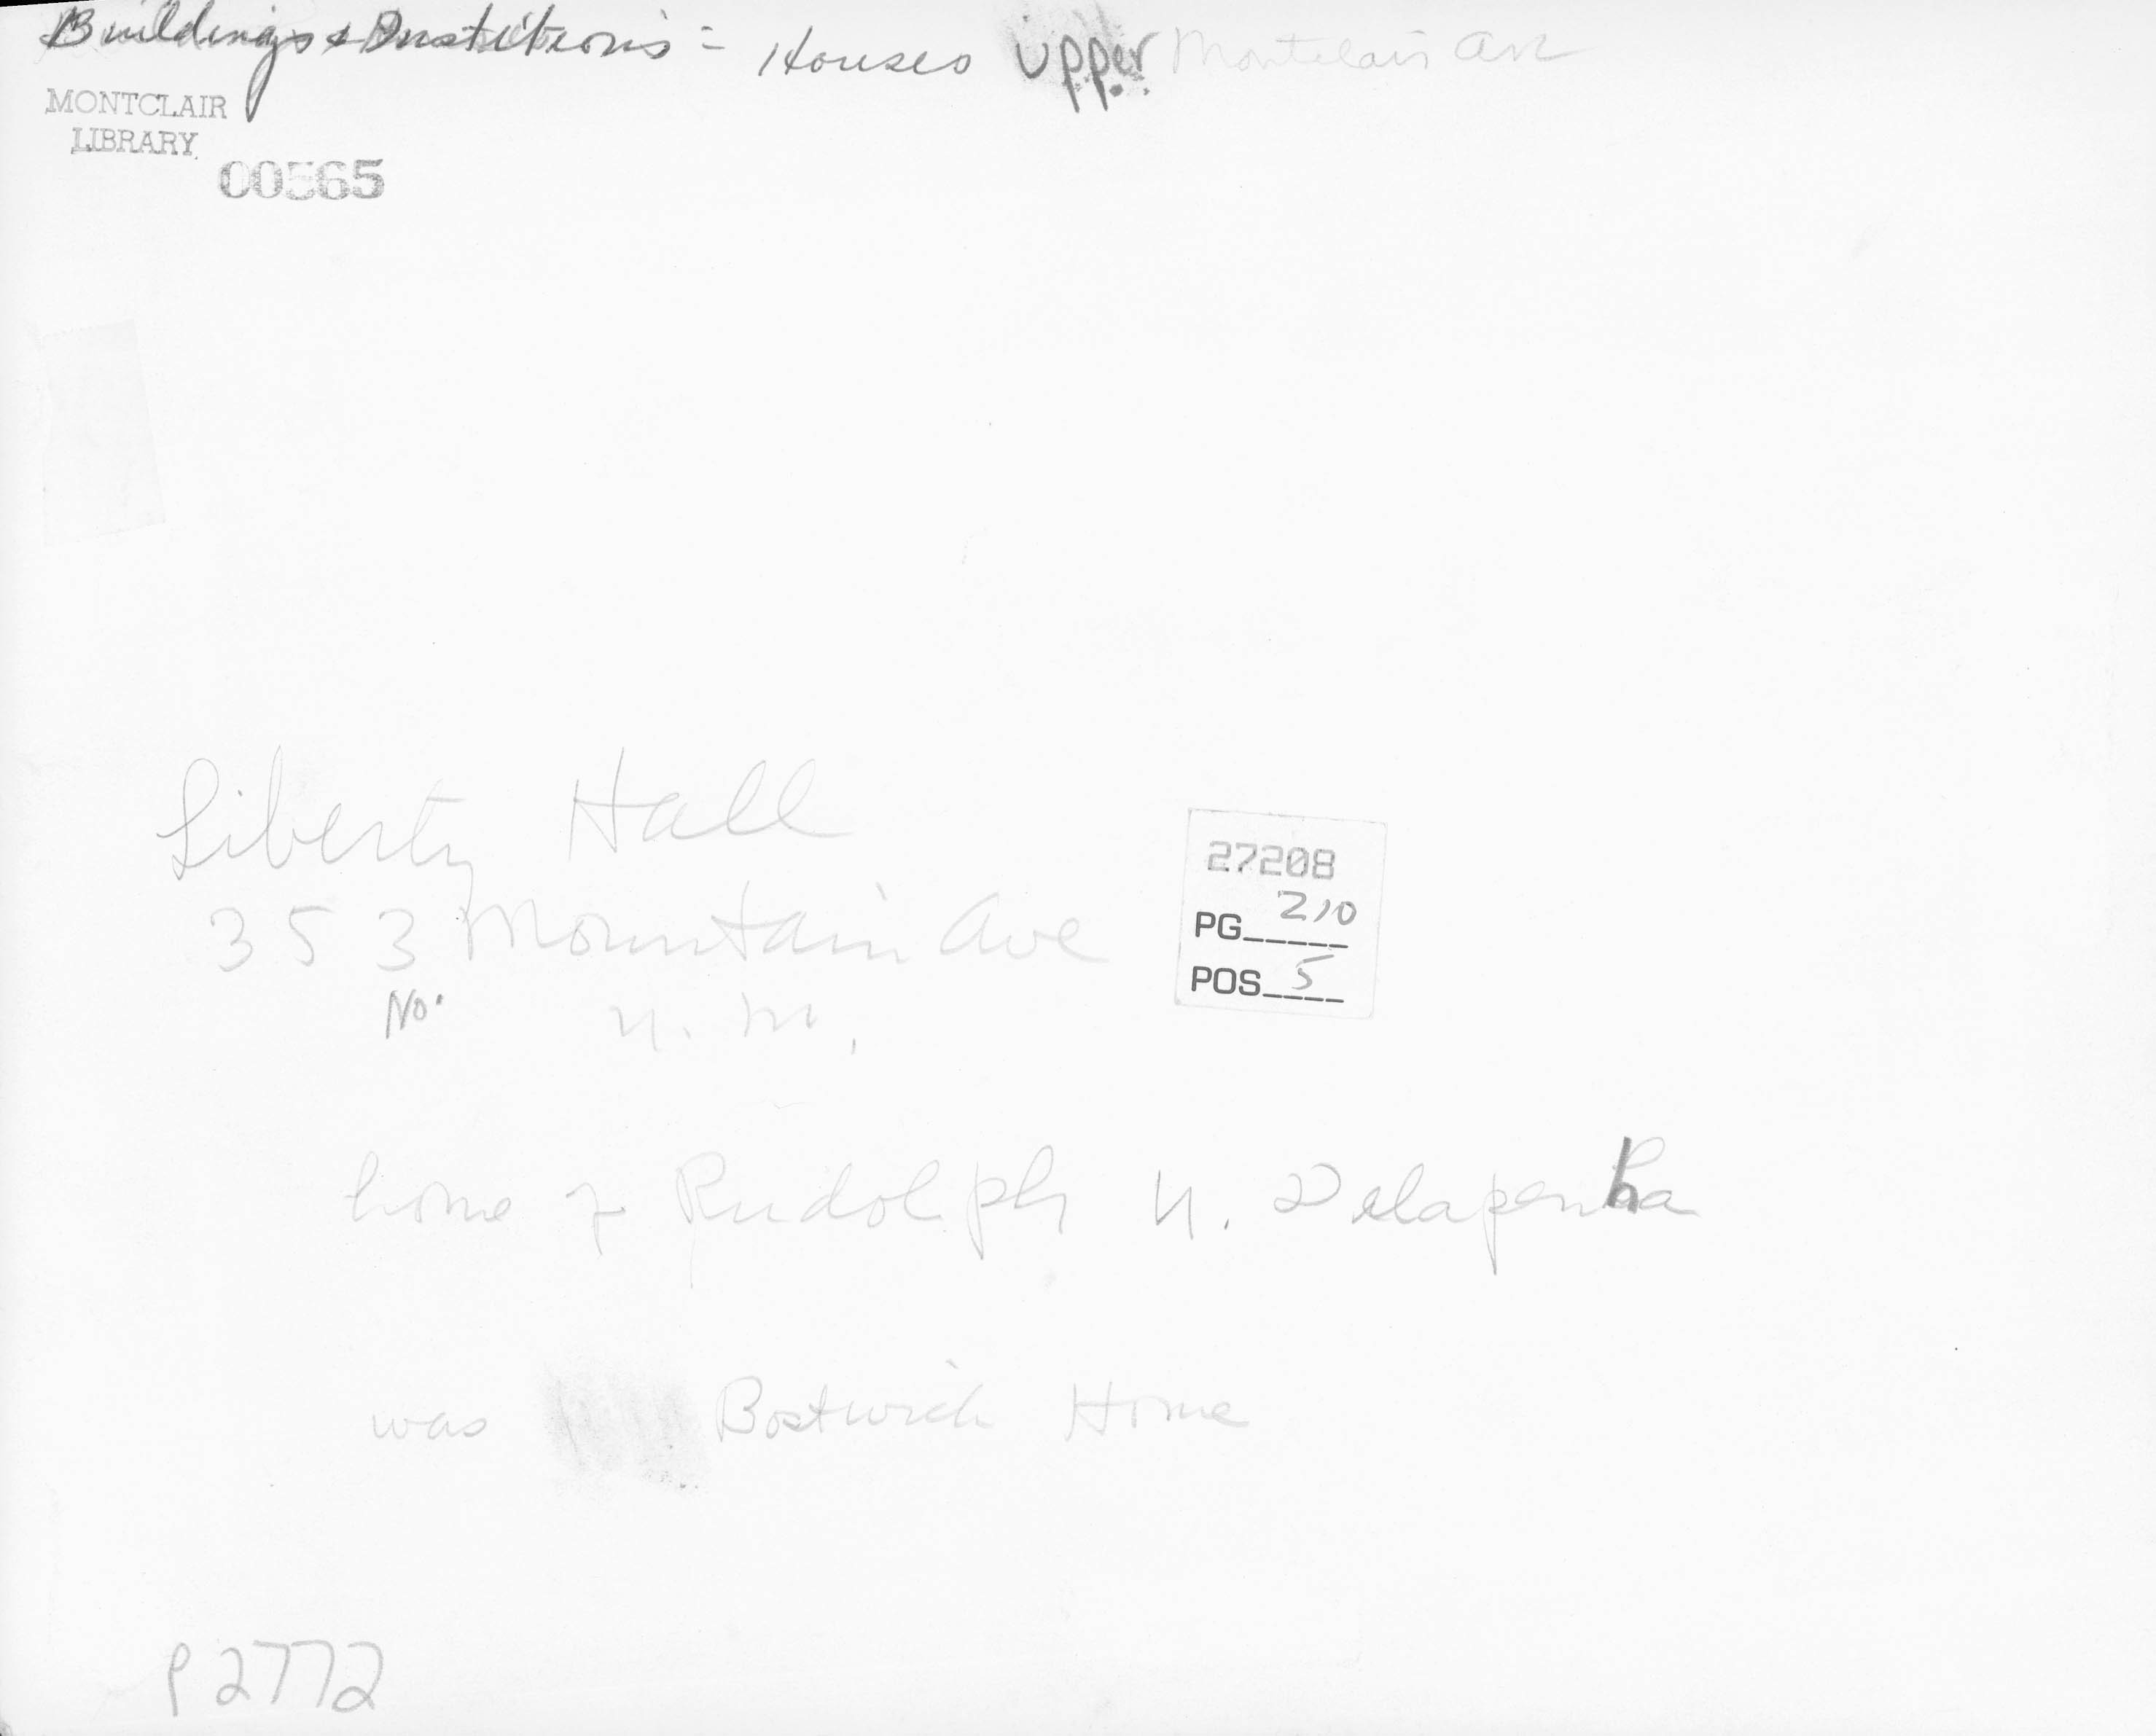 Buildings & Institutions - Houses Upper Montclair Ave
MONTCLAIR
LIBRARY
00565
Liberty Hall
353 Mountain Ave
No. U. M.
27208
PG 210
POS 5
home of Rudolph U. Delapenha
was Bostwick Home
P2772